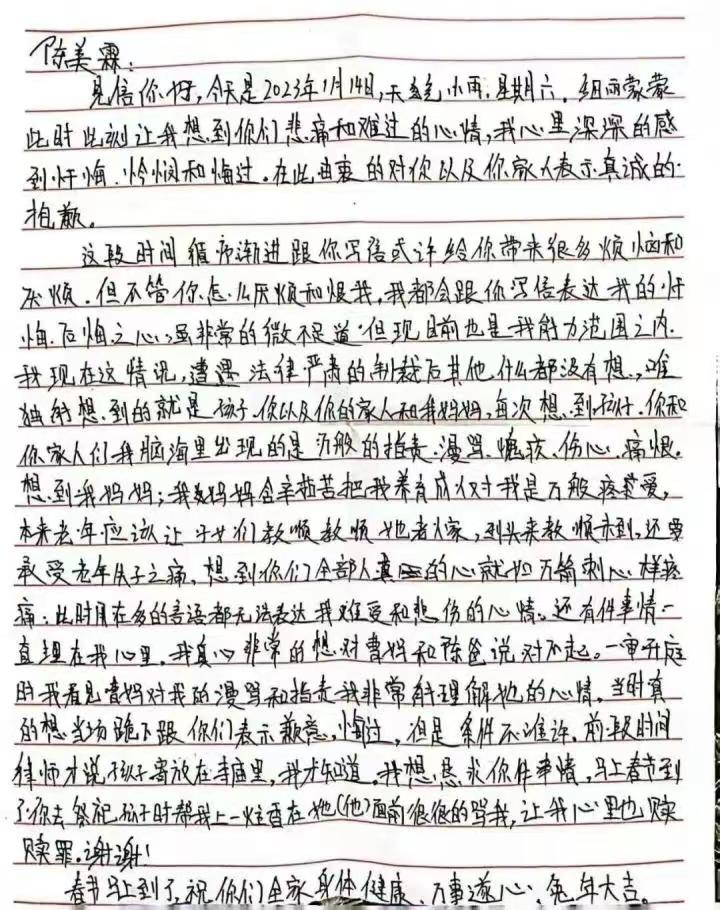 陈美霖:
见信你好,今天是2023年1月14日,天气小雨.星期六.细雨蒙蒙
此时此刻让我想到你们悲痛和难过的心情,我心里深深的感
到忏悔.怜悯和悔过.在此由衷的对你以及你家人表示真诚的
抱歉。
这段时间循序渐进跟你写信或许给你带来很多烦恼和
厌烦.但不管你怎么厌烦和恨我.我都会跟你写信表达我的忏
悔.后悔之心.虽非常的微不足道.但现目前也是我能力范围之内.
我现在这情况,遭遇法律严肃的制裁后其他什么都没有想.,唯
独能想到的就是孩子.你以及你的家人和我妈妈,每次想到孩子.你和
你家人们我脑海里出现的是万般的指责.漫骂.愧疚.伤心.痛恨.
想到我妈妈;我妈妈含辛茹苦把我养育成人对我是万般疼爱,
本来老年应该让子女们孝顺孝顺她老人家,到头来孝顺未到,还要
承受老年失子之痛.想到你们全部人真的心就如万箭刺心一样疼
痛:此时用在多的言语都无法表达我难受和悲伤的心情。还有件事情一
直埋在我心里.我真心非常的想对曹妈和陈爸说对不起。一审开庭
时我看见曹妈对我的漫骂和指责我非常能理解她的心情,当时真
的想当场跪下跟你们表示歉意,悔过,但是条件不准许.前段时间
律师才说孩子寄放在寺庙里,我才知道.我想恳求你件事情.马上春节到
了你去祭祀孩子时帮我上一炷香在她(他)面前很很的骂我,让我心里也赎
赎罪.谢谢!
春节马上到了,祝你们全家身体健康、万事遂心、兔年大吉。